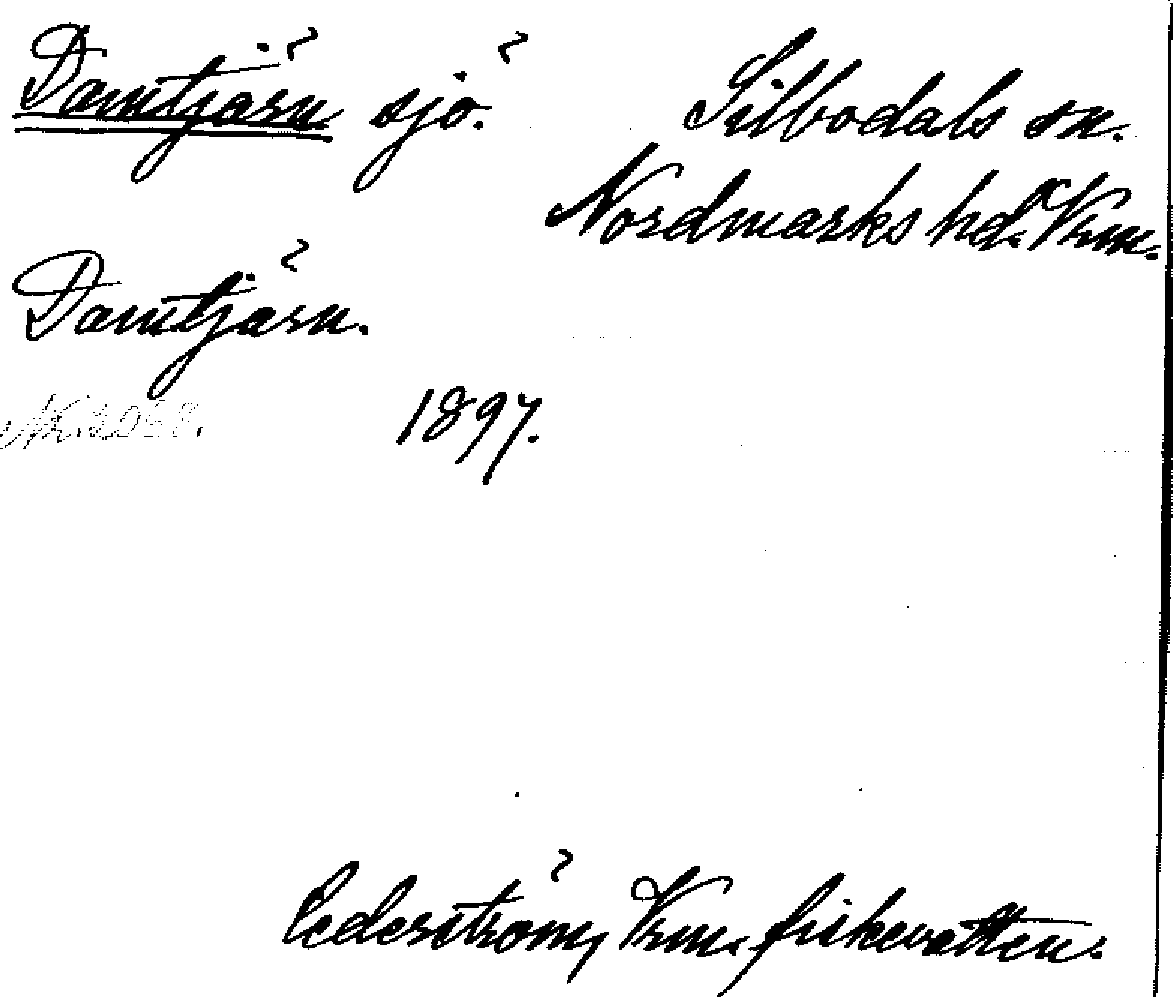 Damtjärn sjö. Silbodals sn.
Nordmarks hd. Vrm.
Damtjärn.
Nr. 2058. 1897.
Cederström, Vrm. fiskevatten.